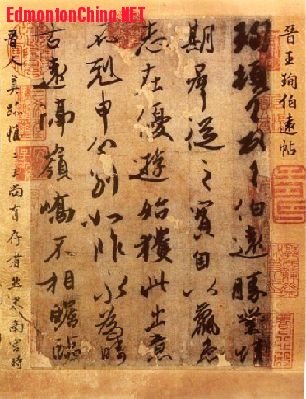 EdmontonChina.NET
晉王珣伯遠帖
珣頓首頓首伯遠勝業情
期群從之寶自以羸患
志在優遊始獲此出意
不剋申分別如昨永為疇
古遠隔嶺嶠不相瞻臨
晉人真跡惟二王尚有存者然米南宮時